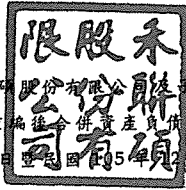 禾聯碩
股份有
限公司
股份有限公司
後合併資產負債
日暨民國105年12